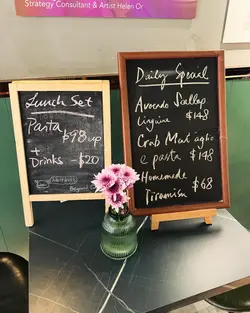 Strategy Consultant & Artist Helen Or
Lunch Set
Pasta
$98 up
+
Drinks - $20
Daily Special
Avocado Scallop
linguine $148
Crab Meat aglio
e pasta $148
Homemade
Tiramisu $68